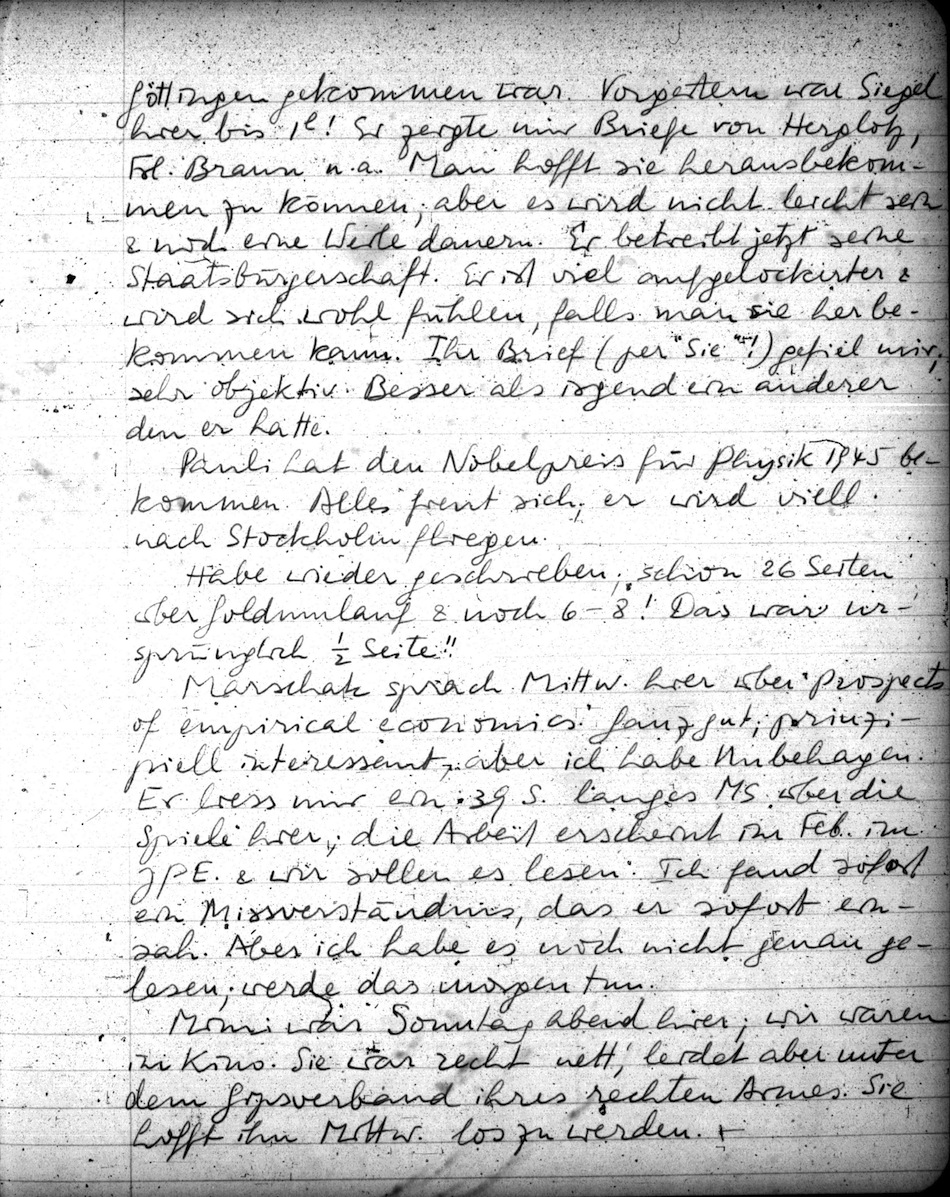 Göttingen gekommen war. Vorgestern war Siegel
hier bis 1ʰ! Er zeigte mir Briefe von Herglotz,
Frl. Braun u.a. Man hofft sie herausbekom-
men zu können; aber es wird nicht leicht sein
& noch eine Weile dauern. Er betreibt jetzt seine
Staatsbürgerschaft. Er ist viel aufgelockerter &
wird sich wohl fühlen, falls man sie herbe-
kommen kann. Ihr Brief (per "Sie"!) gefiel mir,
sehr objektiv. Besser als irgend ein anderer
den er hatte.
Pauli hat den Nobelpreis für Physik 1945 be-
kommen. Alles freut sich; er wird viell.
nach Stockholm fliegen.
Habe wieder geschrieben; schon 26 Seiten
über Goldumlauf & noch 6-8! Das war ur-
sprünglich ½ Seite!!
Marschak sprach Mittw. hier über "Prospects
of empirical economics". Ganz gut; prinzi-
piell interessant, aber ich habe Unbehagen.
Er liess mir ein 39 S. langes MS. über die
Spiele hier; die Arbeit erscheint im Feb. im
JPE. & wir sollen es lesen. Ich fand sofort
ein Missverständnis, das er sofort ein-
sah. Aber ich habe es noch nicht genau ge-
lesen; werde das morgen tun.
Mimi war Sonntag abend hier; wir waren
im Kino. Sie war recht nett, leidet aber unter
dem Gipsverband ihres rechten Armes. Sie
hofft ihn Mittw. los zu werden. +